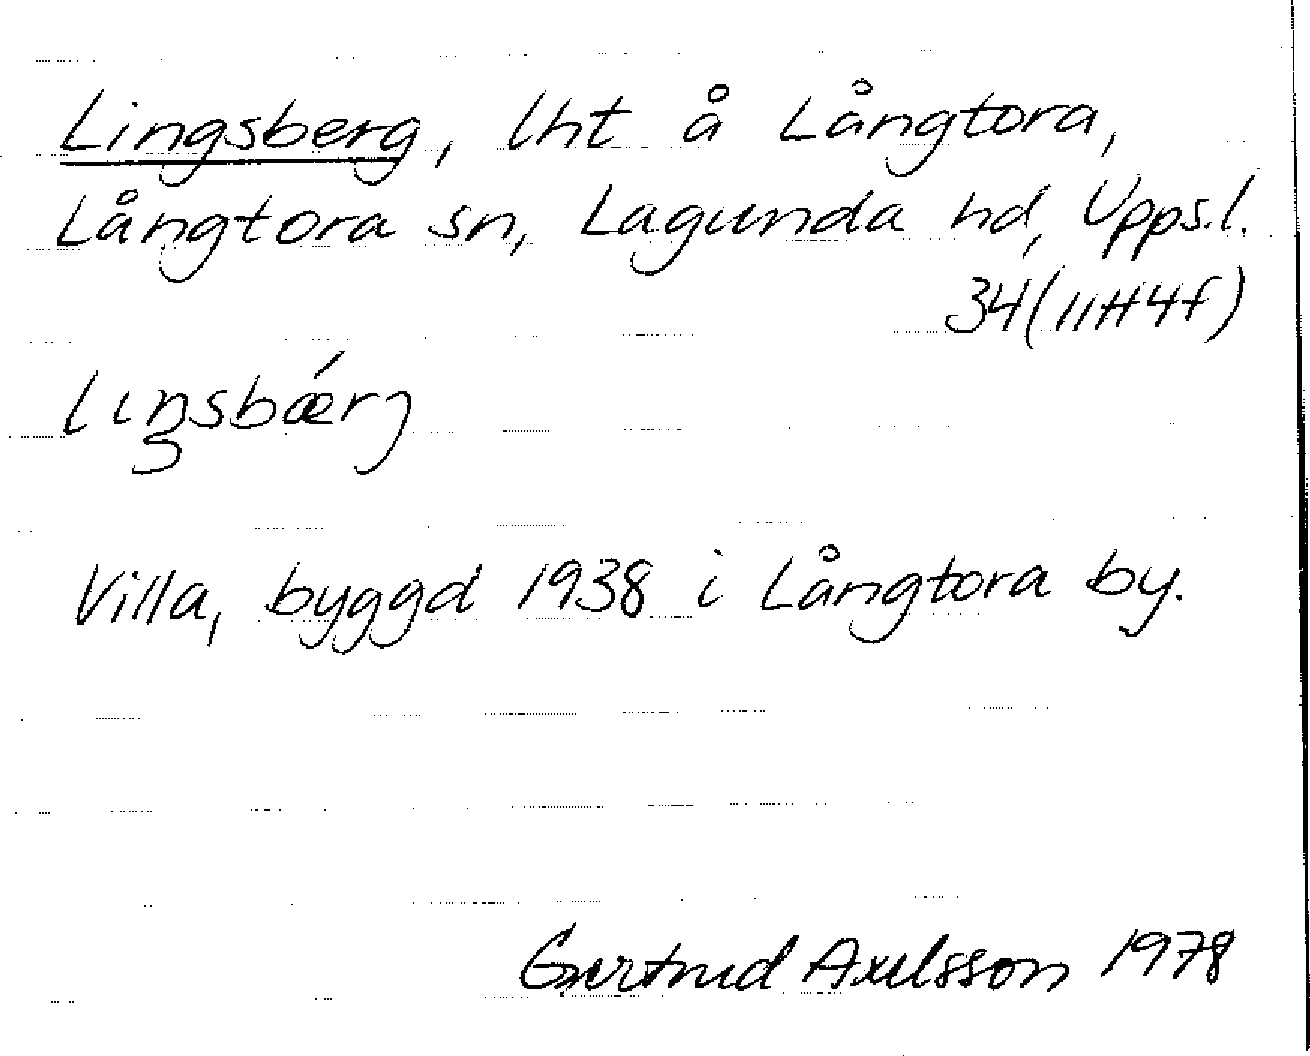 Lingsberg, lht å Långtora,
Långtora sn, Lagunda hd, Upps.l.
34(11H4f)
lıŋsbǽrj
Villa, byggd 1938 i Långtora by.
Gertrud Axelsson 1978